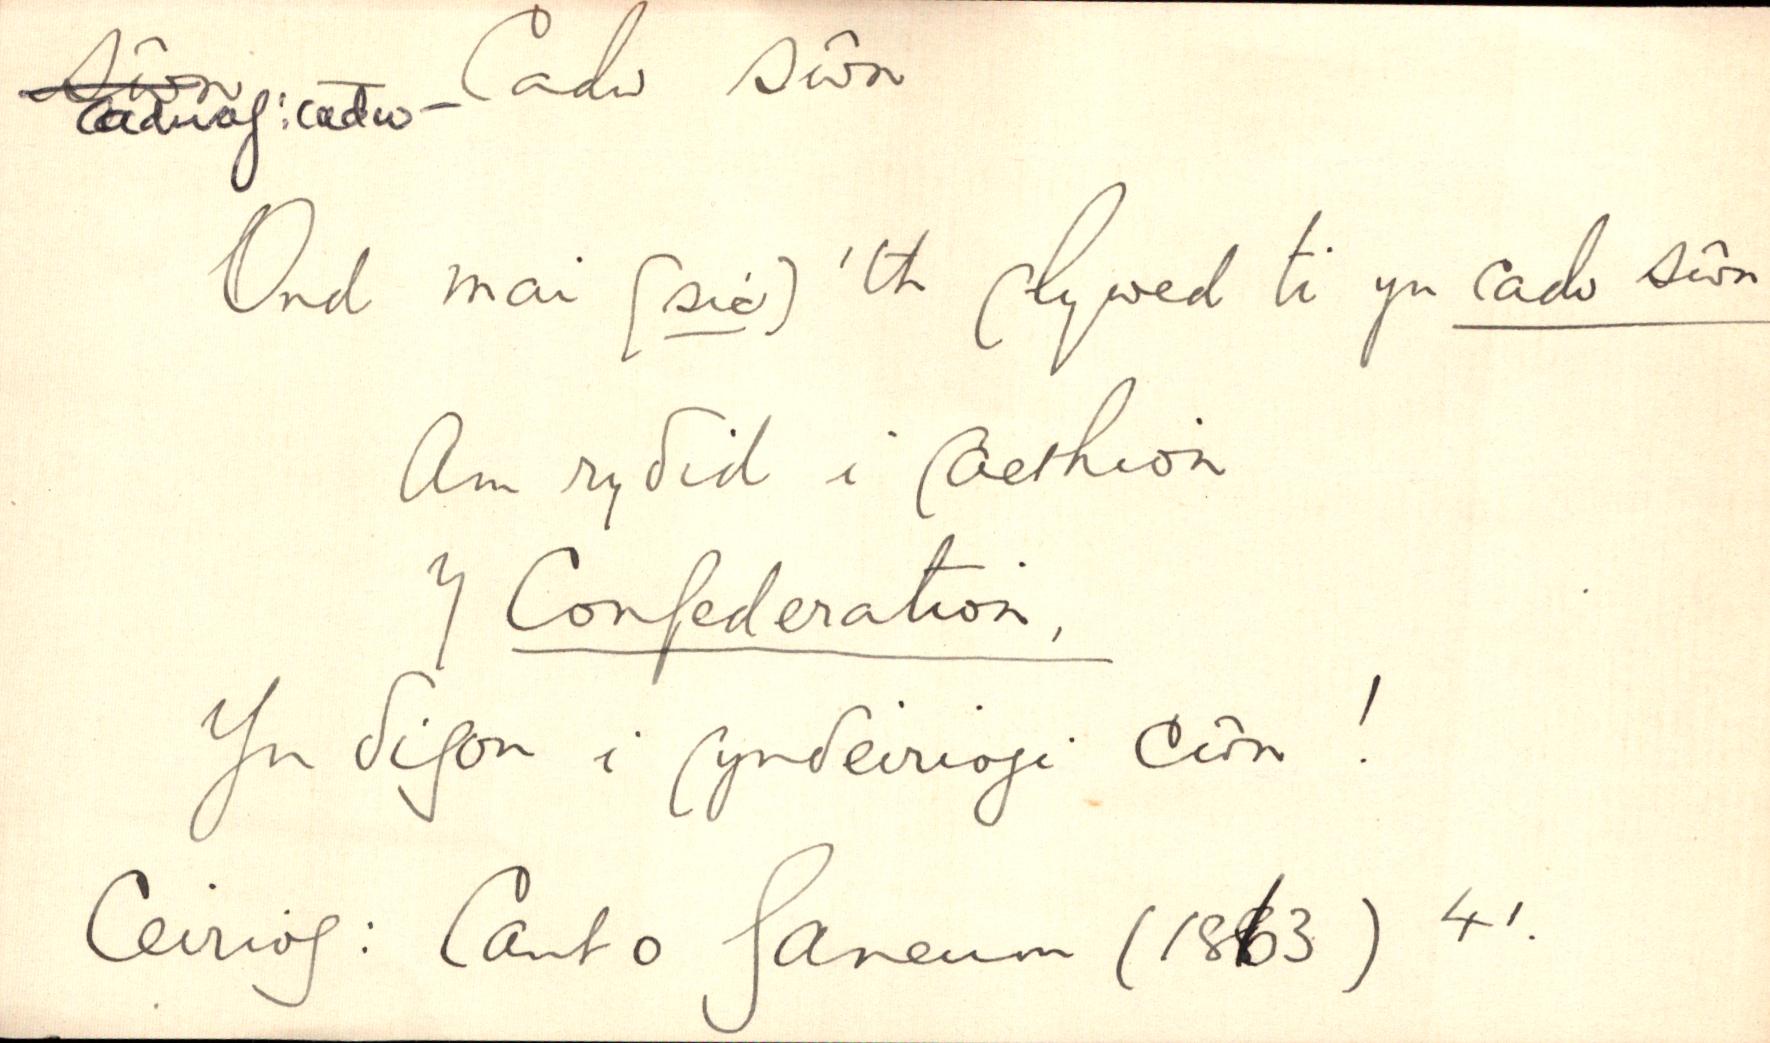 sŵn Cadw sŵn
cadwaf: cadw –
Ond mai (sic) 'th glywed ti yn cadw sŵn
Am ryδid i gaethion
Y Confederation,
Yn δigon i gynδeiriogi cŵn !
Ceiriog: Cant o Ganeuon (1863) 41.